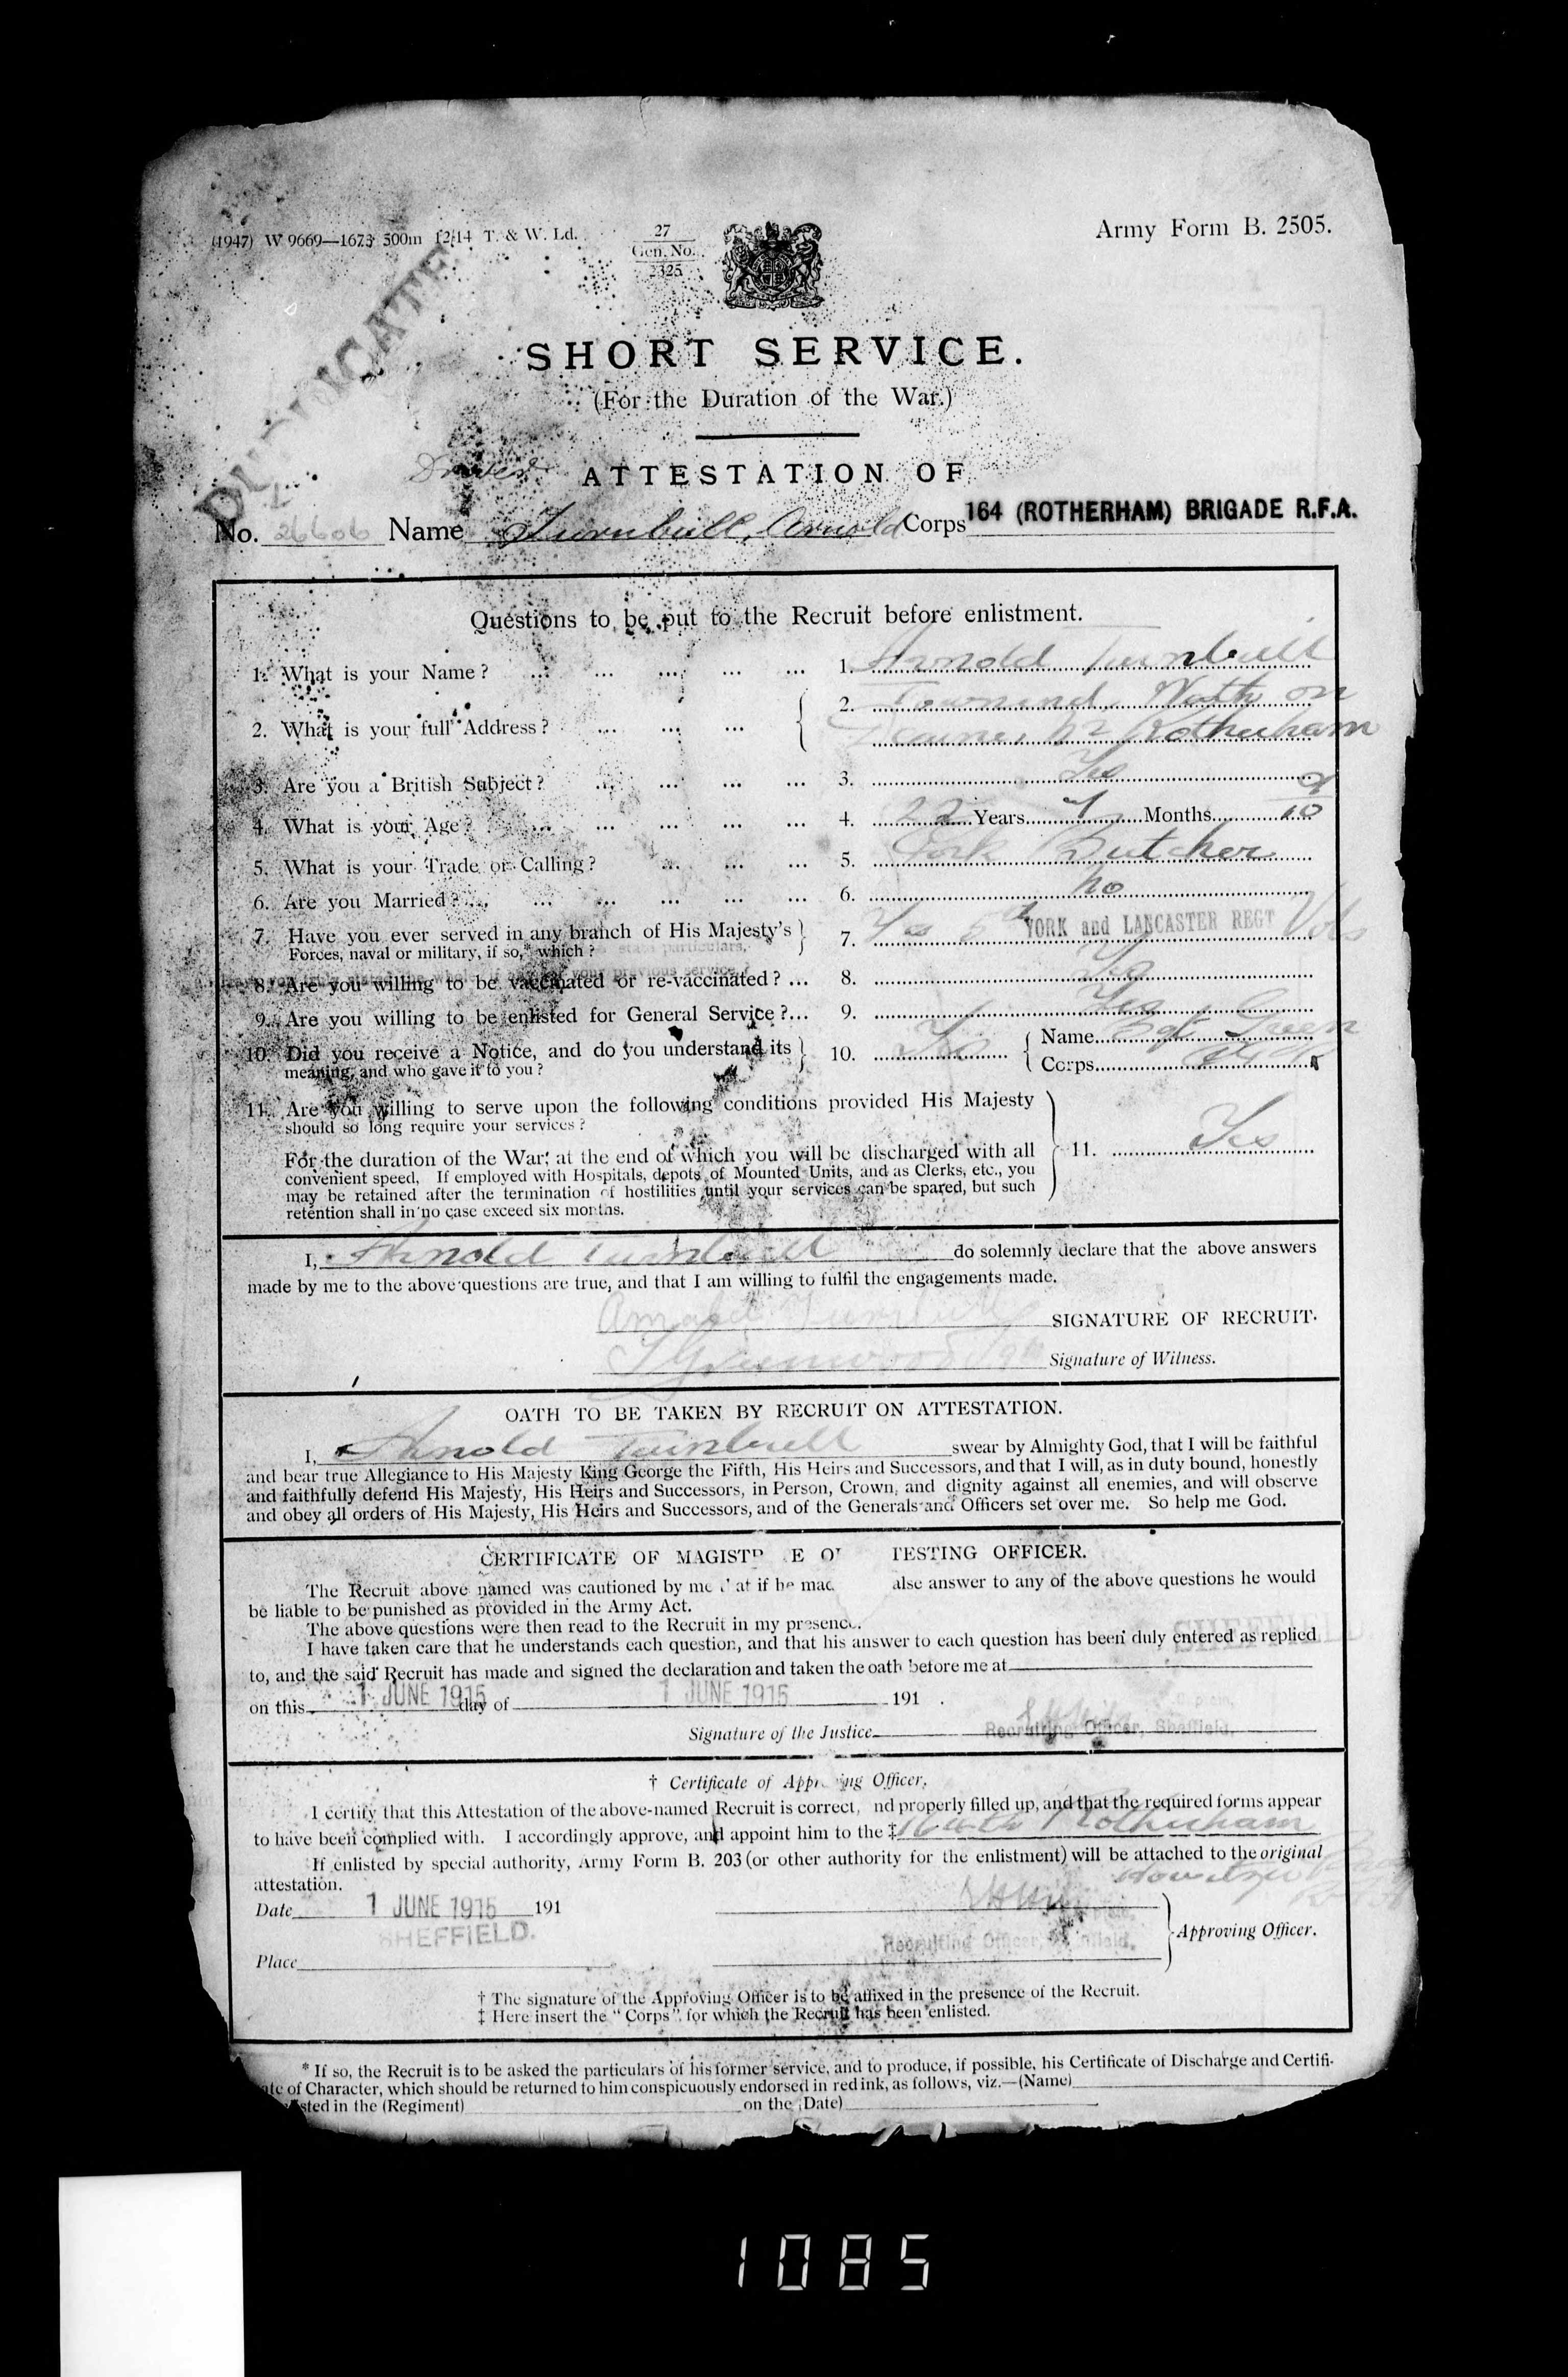 (1947) W 9669—1673 500m 12/14 T. & W. Ld.
27
Gen. No.
2325
Army Form B. 2505.
DUPLICATE
SHORT SERVICE.
(For the Duration of the War.)
Driver
ATTESTATION OF
No. 26606 Name Turnbull, Arnold Corps 164 (ROTHERHAM) BRIGADE R.F.A.
Questions to be put to the Recruit before enlistment.
1. What is your Name? ... ... ... ... ... 1. Arnold Turnbull
2. What is your full Address? ... ... ... 2. Townend, Wath on
Dearne, Nr Rotherham
3. Are you a British Subject? ... ... ... ... 3. Yes
4. What is your Age? ... ... ... ... ... 4. 22 Years 7 Months
5. What is your Trade or Calling? ... ... ... 5. Pork Butcher
6. Are you Married? ... ... ... ... ... ... 6. no
7. Have you ever served in any branch of His Majesty's
Forces, naval or military, if so,* which? 7. Yes YORK and LANCASTER REGT Vols
8. Are you willing to be vaccinated or re-vaccinated? ... 8. Yes
9. Are you willing to be enlisted for General Service? ... 9. Yes
10. Did you receive a Notice, and do you understand its
meaning, and who gave it to you? 10. Yes Name Sgt Green
Corps
11. Are you willing to serve upon the following conditions provided His Majesty
should so long require your services?
For the duration of the War, at the end of which you will be discharged with all
convenient speed. If employed with Hospitals, depots of Mounted Units, and as Clerks, etc., you
may be retained after the termination of hostilities until your services can be spared, but such
retention shall in no case exceed six months.
11. Yes
I, Arnold Turnbull do solemnly declare that the above answers
made by me to the above questions are true, and that I am willing to fulfil the engagements made.
Arnold Turnbull SIGNATURE OF RECRUIT.
Greenwood Signature of Witness.
OATH TO BE TAKEN BY RECRUIT ON ATTESTATION.
I, Arnold Turnbull swear by Almighty God, that I will be faithful
and bear true Allegiance to His Majesty King George the Fifth, His Heirs and Successors, and that I will, as in duty bound, honestly
and faithfully defend His Majesty, His Heirs and Successors, in Person, Crown, and dignity against all enemies, and will observe
and obey all orders of His Majesty, His Heirs and Successors, and of the Generals and Officers set over me. So help me God.
CERTIFICATE OF MAGISTR E O TESTING OFFICER.
The Recruit above named was cautioned by me at if he mad alse answer to any of the above questions he would
be liable to be punished as provided in the Army Act.
The above questions were then read to the Recruit in my presence.
I have taken care that he understands each question, and that his answer to each question has been duly entered as replied
to, and the said Recruit has made and signed the declaration and taken the oath before me at SHEFFIELD.
on this 1 JUNE 1915 day of 1 JUNE 1915 191 .
Signature of the Justice Recruiting Officer, Sheffield.
† Certificate of Appr ing Officer.
I certify that this Attestation of the above-named Recruit is correct, nd properly filled up, and that the required forms appear
to have been complied with. I accordingly approve, and appoint him to the ‡ 164th Rotherham
Howitzer
If enlisted by special authority, Army Form B. 203 (or other authority for the enlistment) will be attached to the original
attestation.
Date 1 JUNE 1915 191
SHEFFIELD.
Recruiting Officer, Sheffield.
Approving Officer.
Place
† The signature of the Approving Officer is to be affixed in the presence of the Recruit.
‡ Here insert the "Corps" for which the Recruit has been enlisted.
* If so, the Recruit is to be asked the particulars of his former service, and to produce, if possible, his Certificate of Discharge and Certifi-
ate of Character, which should be returned to him conspicuously endorsed in red ink, as follows, viz.—(Name)
sted in the (Regiment) on the (Date)
1085